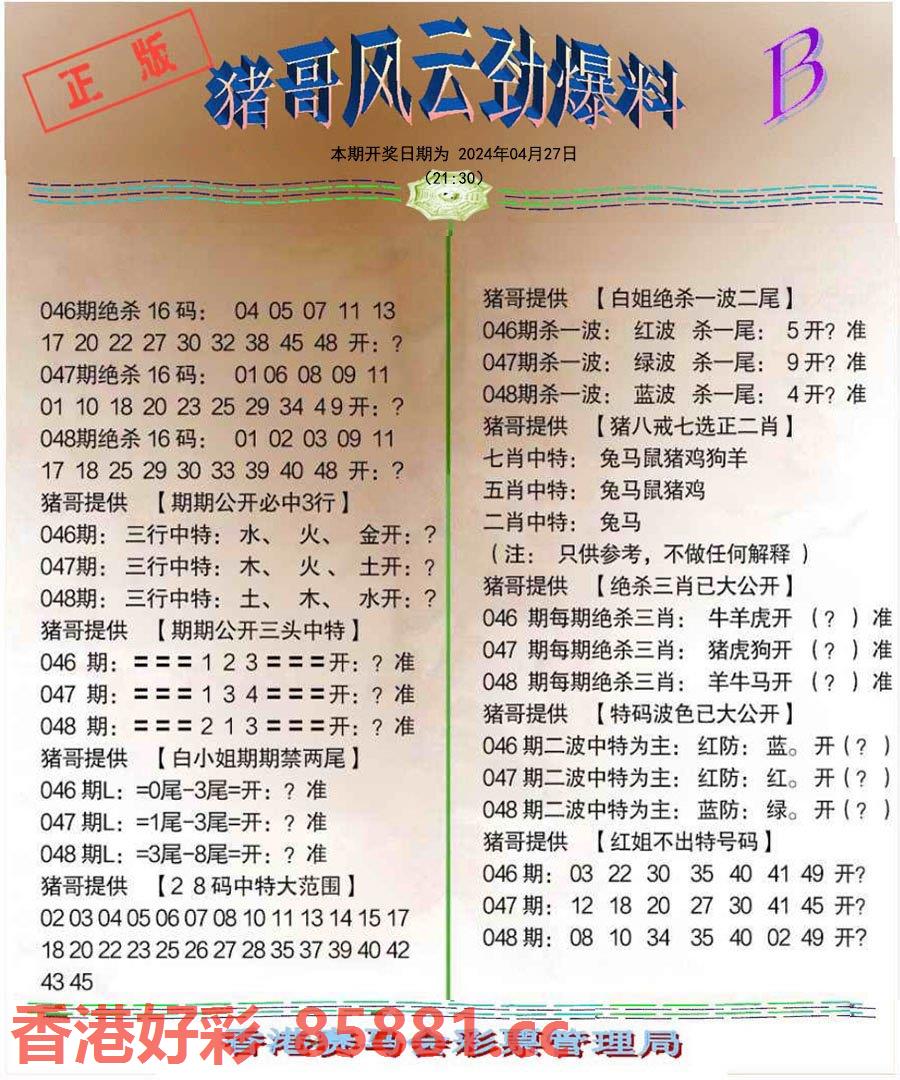 正版
猪哥风云劲爆料
B
本期开奖日期为 2024年04月27日
(21:30)
046期绝杀16码： 04 05 07 11 13
17 20 22 27 30 32 38 45 48 开：?
047期绝杀16码： 01 06 08 09 11
01 10 18 20 23 25 29 34 49开：?
048期绝杀16码： 01 02 03 09 11
17 18 25 29 30 33 39 40 48 开：?
猪哥提供 【期期公开必中3行】
046期：三行中特：水、 火、 金开：?
047期：三行中特：木、 火、 土开：?
048期：三行中特：土、 木、 水开：?
猪哥提供 【期期公开三头中特】
046 期：===1 2 3===开：? 准
047 期：===1 3 4===开：? 准
048 期：===2 1 3===开：? 准
猪哥提供 【白小姐期期禁两尾】
046期L：=0尾-3尾=开：? 准
047期L：=1尾-3尾=开：? 准
048期L：=3尾-8尾=开：? 准
猪哥提供 【28码中特大范围】
02 03 04 05 06 07 08 10 11 13 14 15 17
18 20 22 23 25 26 27 28 35 37 39 40 42
43 45
猪哥提供 【白姐绝杀一波二尾】
046期杀一波： 红波 杀一尾： 5开? 准
047期杀一波： 绿波 杀一尾： 9开? 准
048期杀一波： 蓝波 杀一尾： 4开? 准
猪哥提供 【猪八戒七选正二肖】
七肖中特： 兔马鼠猪鸡狗羊
五肖中特： 兔马鼠猪鸡
二肖中特： 兔马
（注： 只供参考，不做任何解释）
猪哥提供 【绝杀三肖已大公开】
046 期每期绝杀三肖： 牛羊虎开 （?）准
047 期每期绝杀三肖： 猪虎狗开 （?）准
048 期每期绝杀三肖： 羊牛马开 （?）准
猪哥提供 【特码波色已大公开】
046期二波中特为主：红防：蓝。开(?)
047期二波中特为主：红防：红。开(?)
048期二波中特为主：蓝防：绿。开(?)
猪哥提供 【红姐不出特号码】
046期： 03 22 30 35 40 41 49 开?
047期： 12 18 20 27 30 41 45 开?
048期： 08 10 34 35 40 02 49 开?
香港好彩 85881.cc
香港赛马会彩票管理局